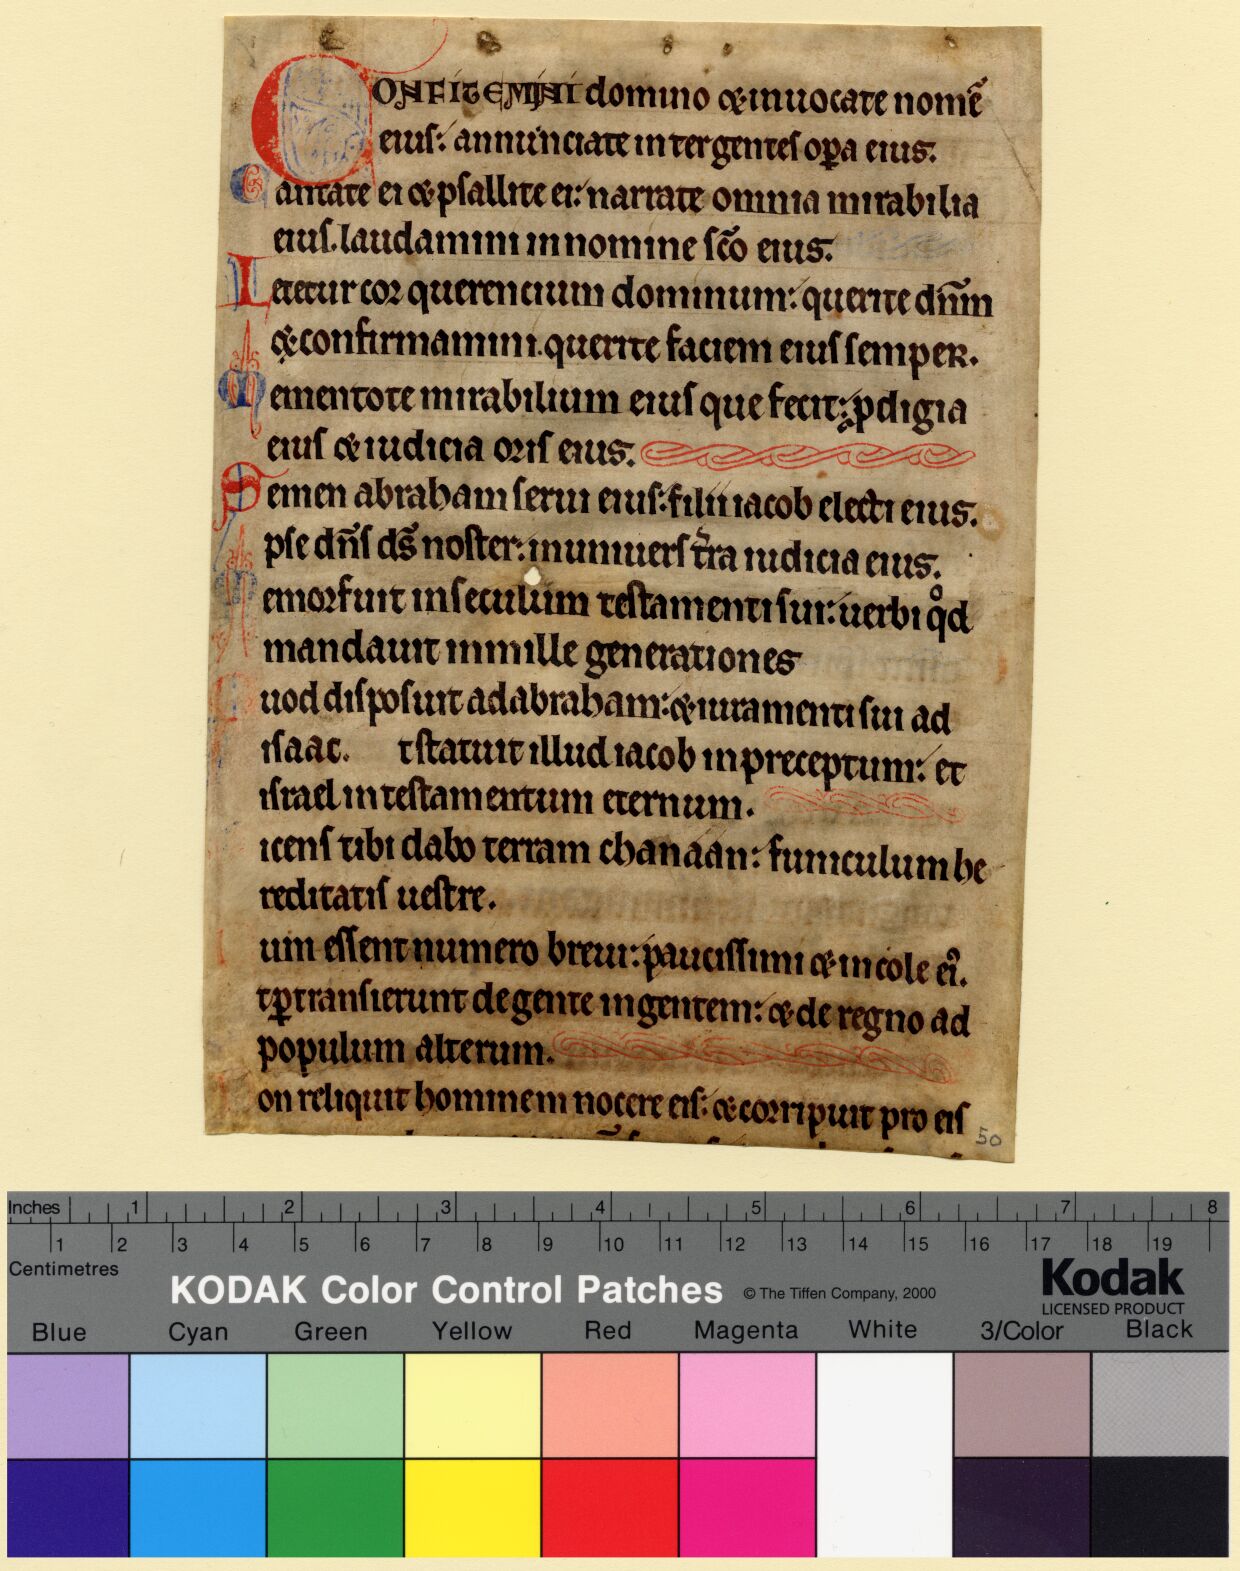 CONFITEMINI domino & inuocate nomē
eius: annunciate inter gentes oꝑa eius.
Cantate ei & psallite ei: narrate omnia mirabilia
eius. laudamini in nomine sc̄o eius.
Letetur cor querencium dominum: querite dn̄m
& confirmamini. querite faciem eius semper.
Mementote mirabilium eius que fecit: ꝓdigia
eius & iudicia oris eius.
Semen abraham serui eius: filii iacob electi eius.
pse dn̄s ds̄ noster: in uniuers tr̄a iudicia eius.
Memor fuit in seculum testamenti sui: uerbi qͦd
mandauit in mille generationes
uod disposuit ad abraham: & iuramenti sui ad
isaac. t statuit illud iacob in preceptum: et
israel in testamentum eternum.
icens tibi dabo terram chanáán: funiculum he
reditatis uestre.
um essent numero breui: paucissimi & incole ei᾽.
t ꝑtransierunt de gente in gentem: & de regno ad
populum alterum.
on reliquit hominem nocere eis: & corripuit pro eis
50
Inches 1 2 3 4 5 6 7 8
1 2 3 4 5 6 7 8 9 10 11 12 13 14 15 16 17 18 19
Centimetres
KODAK Color Control Patches © The Tiffen Company, 2000
Kodak
LICENSED PRODUCT
Blue Cyan Green Yellow Red Magenta White 3/Color Black